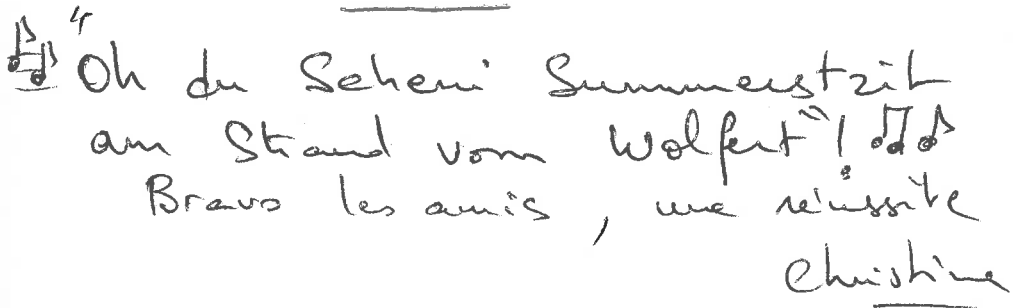 "Oh du Scheni Summerstzit
am Strand vom Wolfert"!
Bravo les amis, une réussite
Christine